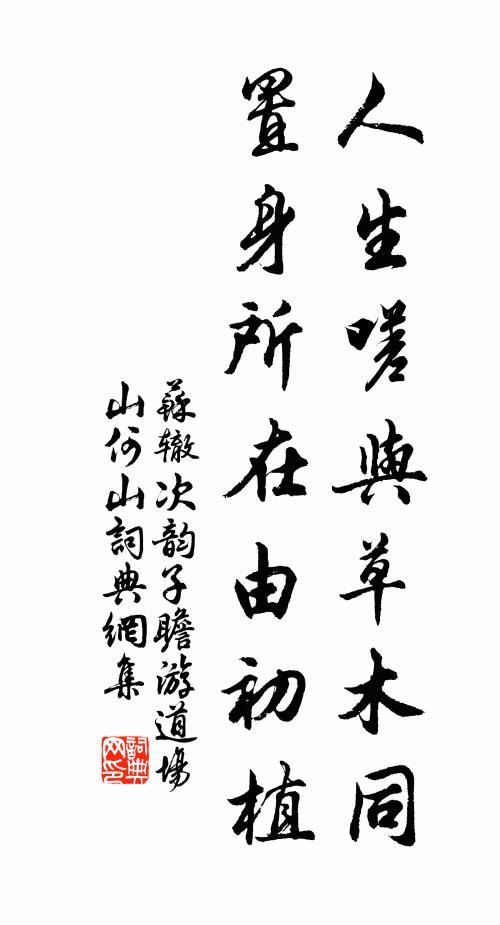 人生嗟與草木同
置身所在由初植
蘇轍次韵子瞻游道場
山何山詞典網集
詞典
网印